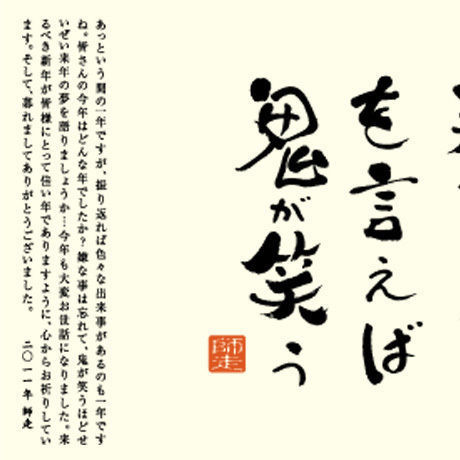 を言えば
鬼が笑う
師走
あっという間の一年ですが、振り返れば色々な出来事があるのも一年です
ね。皆さんの今年はどんな年でしたか？嫌な事は忘れて、鬼が笑うほどせ
いぜい来年の夢を語りましょうか…今年も大変お世話になりました。来
るべき新年が皆様にとって佳い年でありますように、心からお祈りしてい
ます。そして、暮れましてありがとうございました。　二〇一一年 師走